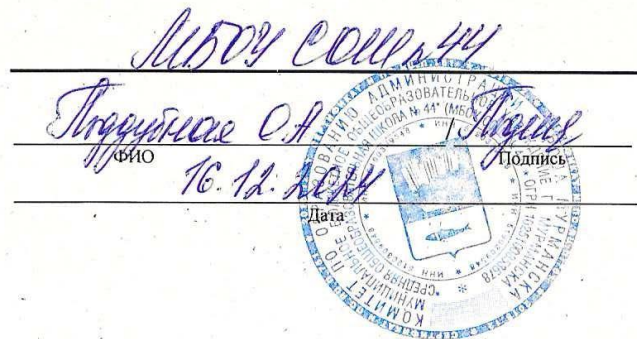 МБОУ СОШ № 44
Поддубная О.А /
ФИО
Подпись
16.12.2024
Дата
КОМИТЕТ ПО ОБРАЗОВАНИЮ АДМИНИСТРАЦИИ ГОРОДА МУРМАНСКА
МУНИЦИПАЛЬНОЕ БЮДЖЕТНОЕ ОБЩЕОБРАЗОВАТЕЛЬНОЕ УЧРЕЖДЕНИЕ Г. МУРМАНСКА
СРЕДНЯЯ ОБЩЕОБРАЗОВАТЕЛЬНАЯ ШКОЛА № 44" (МБОУ
ОГРН
ИНН